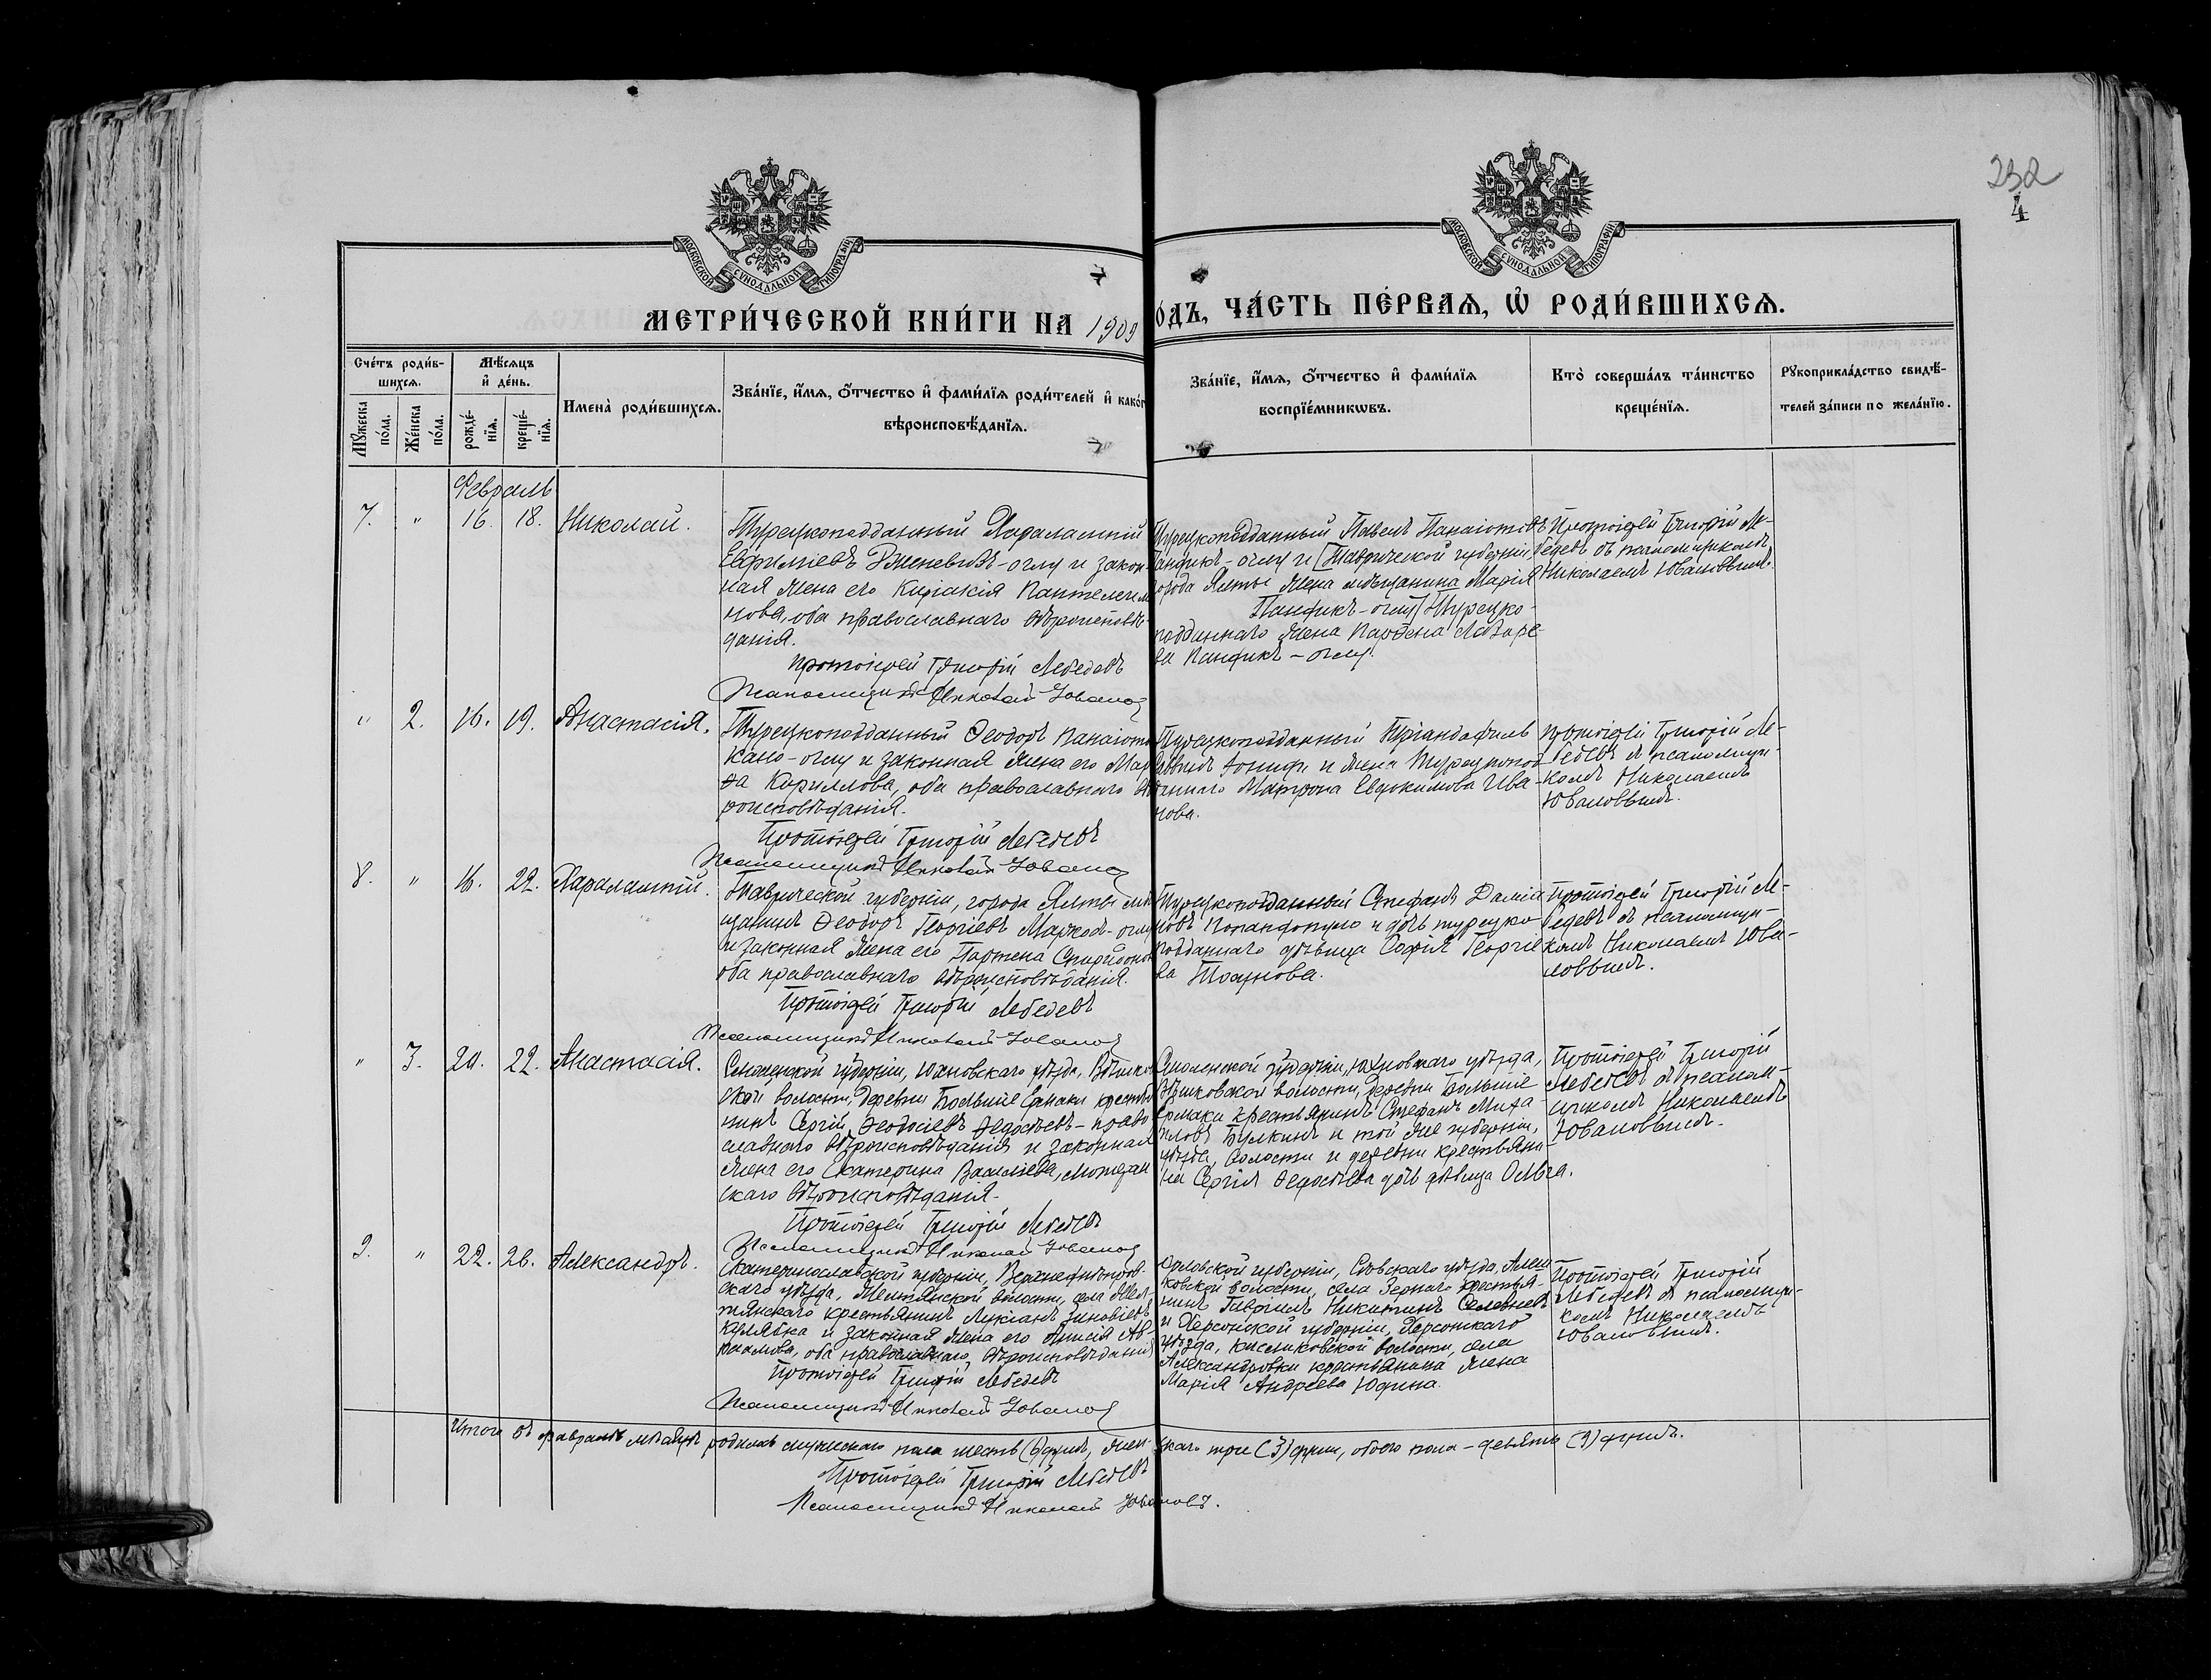 232
4
МОСКОВСКОЙ СУНОДАЛЬНОЙ ТИПОГРАФІИ
МОСКОВСКОЙ СУНОДАЛЬНОЙ ТИПОГРАФІИ
МЕТРИ́ЧЕСКОЙ КНИ́ГИ НА 1909
ОДЪ, ЧА́СТЬ ПЕ́РВАѦ, Ѡ҆ РОДИ́ВШИХСѦ.
Сче́тъ роди́в-
шихсѧ.
Мѣ́сѧцъ
и҆ де́нь.
Мꙋ́жеска
по́ла.
Же́нска
по́ла.
рожде́-
нїѧ.
креще́-
нїѧ.
Имена̀ роди́вшихсѧ.
Зва́нїе, и҆́мѧ, ѻ҆́тчество и҆ фами́лїѧ роди́телей и҆ како́г
вѣроисповѣ́данїѧ.
Зва́нїе, и҆́мѧ, ѻ҆́тчество и҆ фами́лїѧ
воспрїе́мникѡвъ.
Кто̀ соверша́лъ та́инство
креще́нїѧ.
Рꙋкоприкла́дство свидѣ́-
телей за́писи по жела́нїю.
Февраль
7. " 16. 18. Николай.
Турецкоподданный Харалампій
Евфиміевъ -оглу и закон-
ная жена его Киріакія Пантелеим
нова, оба православнаго вѣроисповѣ-
данія.
Протоіерей Григорій Лебедевъ
Псаломщикъ Николай Ювановъ
Турецкоподданный Павелъ Панаіотовъ
Панфикъ-оглу и [Таврической губерніи
города Ялты жена мѣщанина Марія
Панфикъ-оглу] Турецко-
подданнаго жена Парѳена Лазаре-
ва Панфикъ-оглу.
Протоіерей Григорій Ле-
бедевъ съ псаломщикомъ
Николаемъ Ювановымъ.
" 2. 16. 19. Анастасія.
Турецкоподданный Ѳеодоръ Панаіото
Кано-оглу и законная жена его Мар
ѳа Кириллова, оба православнаго вѣ
роисповѣданія.
Протоіерей Григорій Лебедевъ
Псаломщикъ Николай Ювановъ
Турецкоподданный Тріандафилъ
и жена турецкопод-
даннаго Матрона Евдокимова Ива-
нова.
Протоіерей Григорій Ле-
бедевъ съ псаломщи-
комъ Николаемъ
Ювановымъ.
8. " 16. 22. Харалампій.
Таврической губерніи, города Ялты мѣ
щанинъ Ѳеодоръ Георгіевъ Марко-оглу
и законная жена его Партена Спиридонов
оба православнаго вѣроисповѣданія.
Протоіерей Григорій Лебедевъ
Псаломщикъ Николай Ювановъ
Турецкоподданный Стефанъ Даміа
новъ Попандопуло и дочь турецко-
подданнаго дѣвица Софія Георгіе
ва
Протоіерей Григорій Ле-
бедевъ съ псаломщи-
комъ Николаемъ Юва-
новымъ.
" 3. 20. 22. Анастасія.
Смоленской губерніи, Юхновскаго уѣзда,
ской волости, деревни Большіе Ермаки крестья
нинъ Сергій Ѳеодосіевъ Ѳедосѣевъ-право
славнаго вѣроисповѣданія и законная
жена его Екатерина Васильева, лютеран
скаго вѣроисповѣданія.
Протоіерей Григорій Лебедевъ
Псаломщикъ Николай Ювановъ
Смоленской губерніи, Юхновскаго уѣзда,
волости, деревни Большіе
Ермаки крестьянинъ Стефанъ Миха
иловъ Булкинъ и той же губерніи,
уѣзда, волости и деревни крестьяни
на Сергія Ѳедосѣева дочь дѣвица Ольга.
Протоіерей Григорій
Лебедевъ съ псалом-
щикомъ Николаемъ
Ювановымъ.
9. " 22. 26. Александръ.
Екатеринославской губерніи, Верхнеднѣпров-
скаго уѣзда, волости, села
крестьянинъ Лукіанъ Зиновіевъ
Кулябка и законная жена его Анисія Ав-
раамова, оба православнаго вѣроисповѣданія
Протоіерей Григорій Лебедевъ
Псаломщикъ Николай Ювановъ
Орловской губерніи, Сѣвскаго уѣзда,
ковской волости, села Зернаго крестья-
нинъ Гавріилъ Никитинъ
и Херсонской губерніи, Херсонскаго
уѣзда, Кисляковской волости, села
Александровки крестьянина жена
Марія Андреева Юдина.
Протоіерей Григорій
Лебедевъ съ псаломщи-
комъ Николаемъ
Ювановымъ.
Итого въ февралѣ мѣсяцѣ родилось мужескаго пола шесть (6) душъ, жен- скаго три (3) души, обоего пола - девять (9) душъ.
Протоіерей Григорій Лебедевъ
Псаломщикъ Николай Ювановъ.